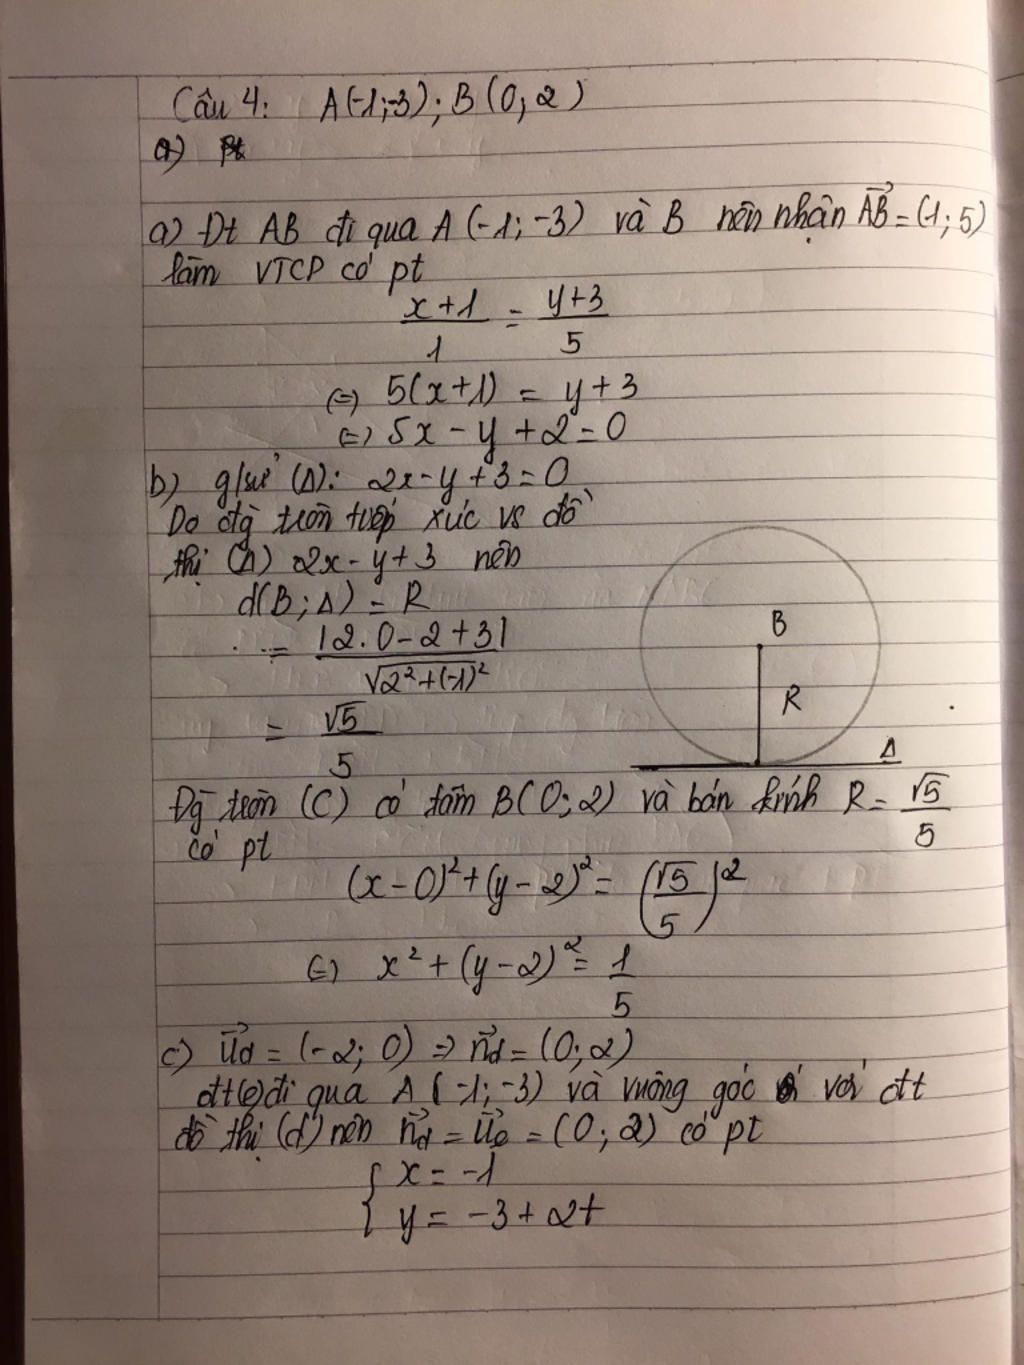 Câu 4: A(-1;-3); B(0;2)
a) pt
a) Đt AB đi qua A(-1;-3) và B nên nhận \vec{AB}=(1;5)
làm VTCP có pt
\frac{x+1}{1} = \frac{y+3}{5}
(=) 5(x+1) = y+3
(=) 5x-y+2=0
b) g/sử (Δ): 2x-y+3=0
Do đg tròn tiếp xúc vs đồ
thị (Δ) 2x-y+3 nên
d(B;Δ) = R
= \frac{|2.0-2+3|}{\sqrt{2^2+(-1)^2}}
= \frac{\sqrt{5}}{5}
B
R
Δ
Đg tròn (C) có tâm B(0;2) và bán kính R = \frac{\sqrt{5}}{5}
có pt
(x-0)^2+(y-2)^2 = \left(\frac{\sqrt{5}}{5}\right)^2
(=) x^2+(y-2)^2 = \frac{1}{5}
c) \vec{u_d} = (-2;0) => \vec{n_d} = (0;2)
đt(e)đi qua A(-1;-3) và vuông góc với đt
đồ thị (d) nên \vec{n_d} = \vec{u_e} = (0;2) có pt
{ x = -1
y = -3+2t